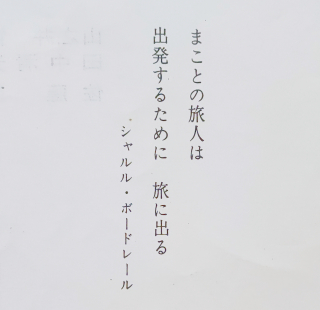 まことの旅人は
出発するために　旅に出る
シャルル・ボードレール